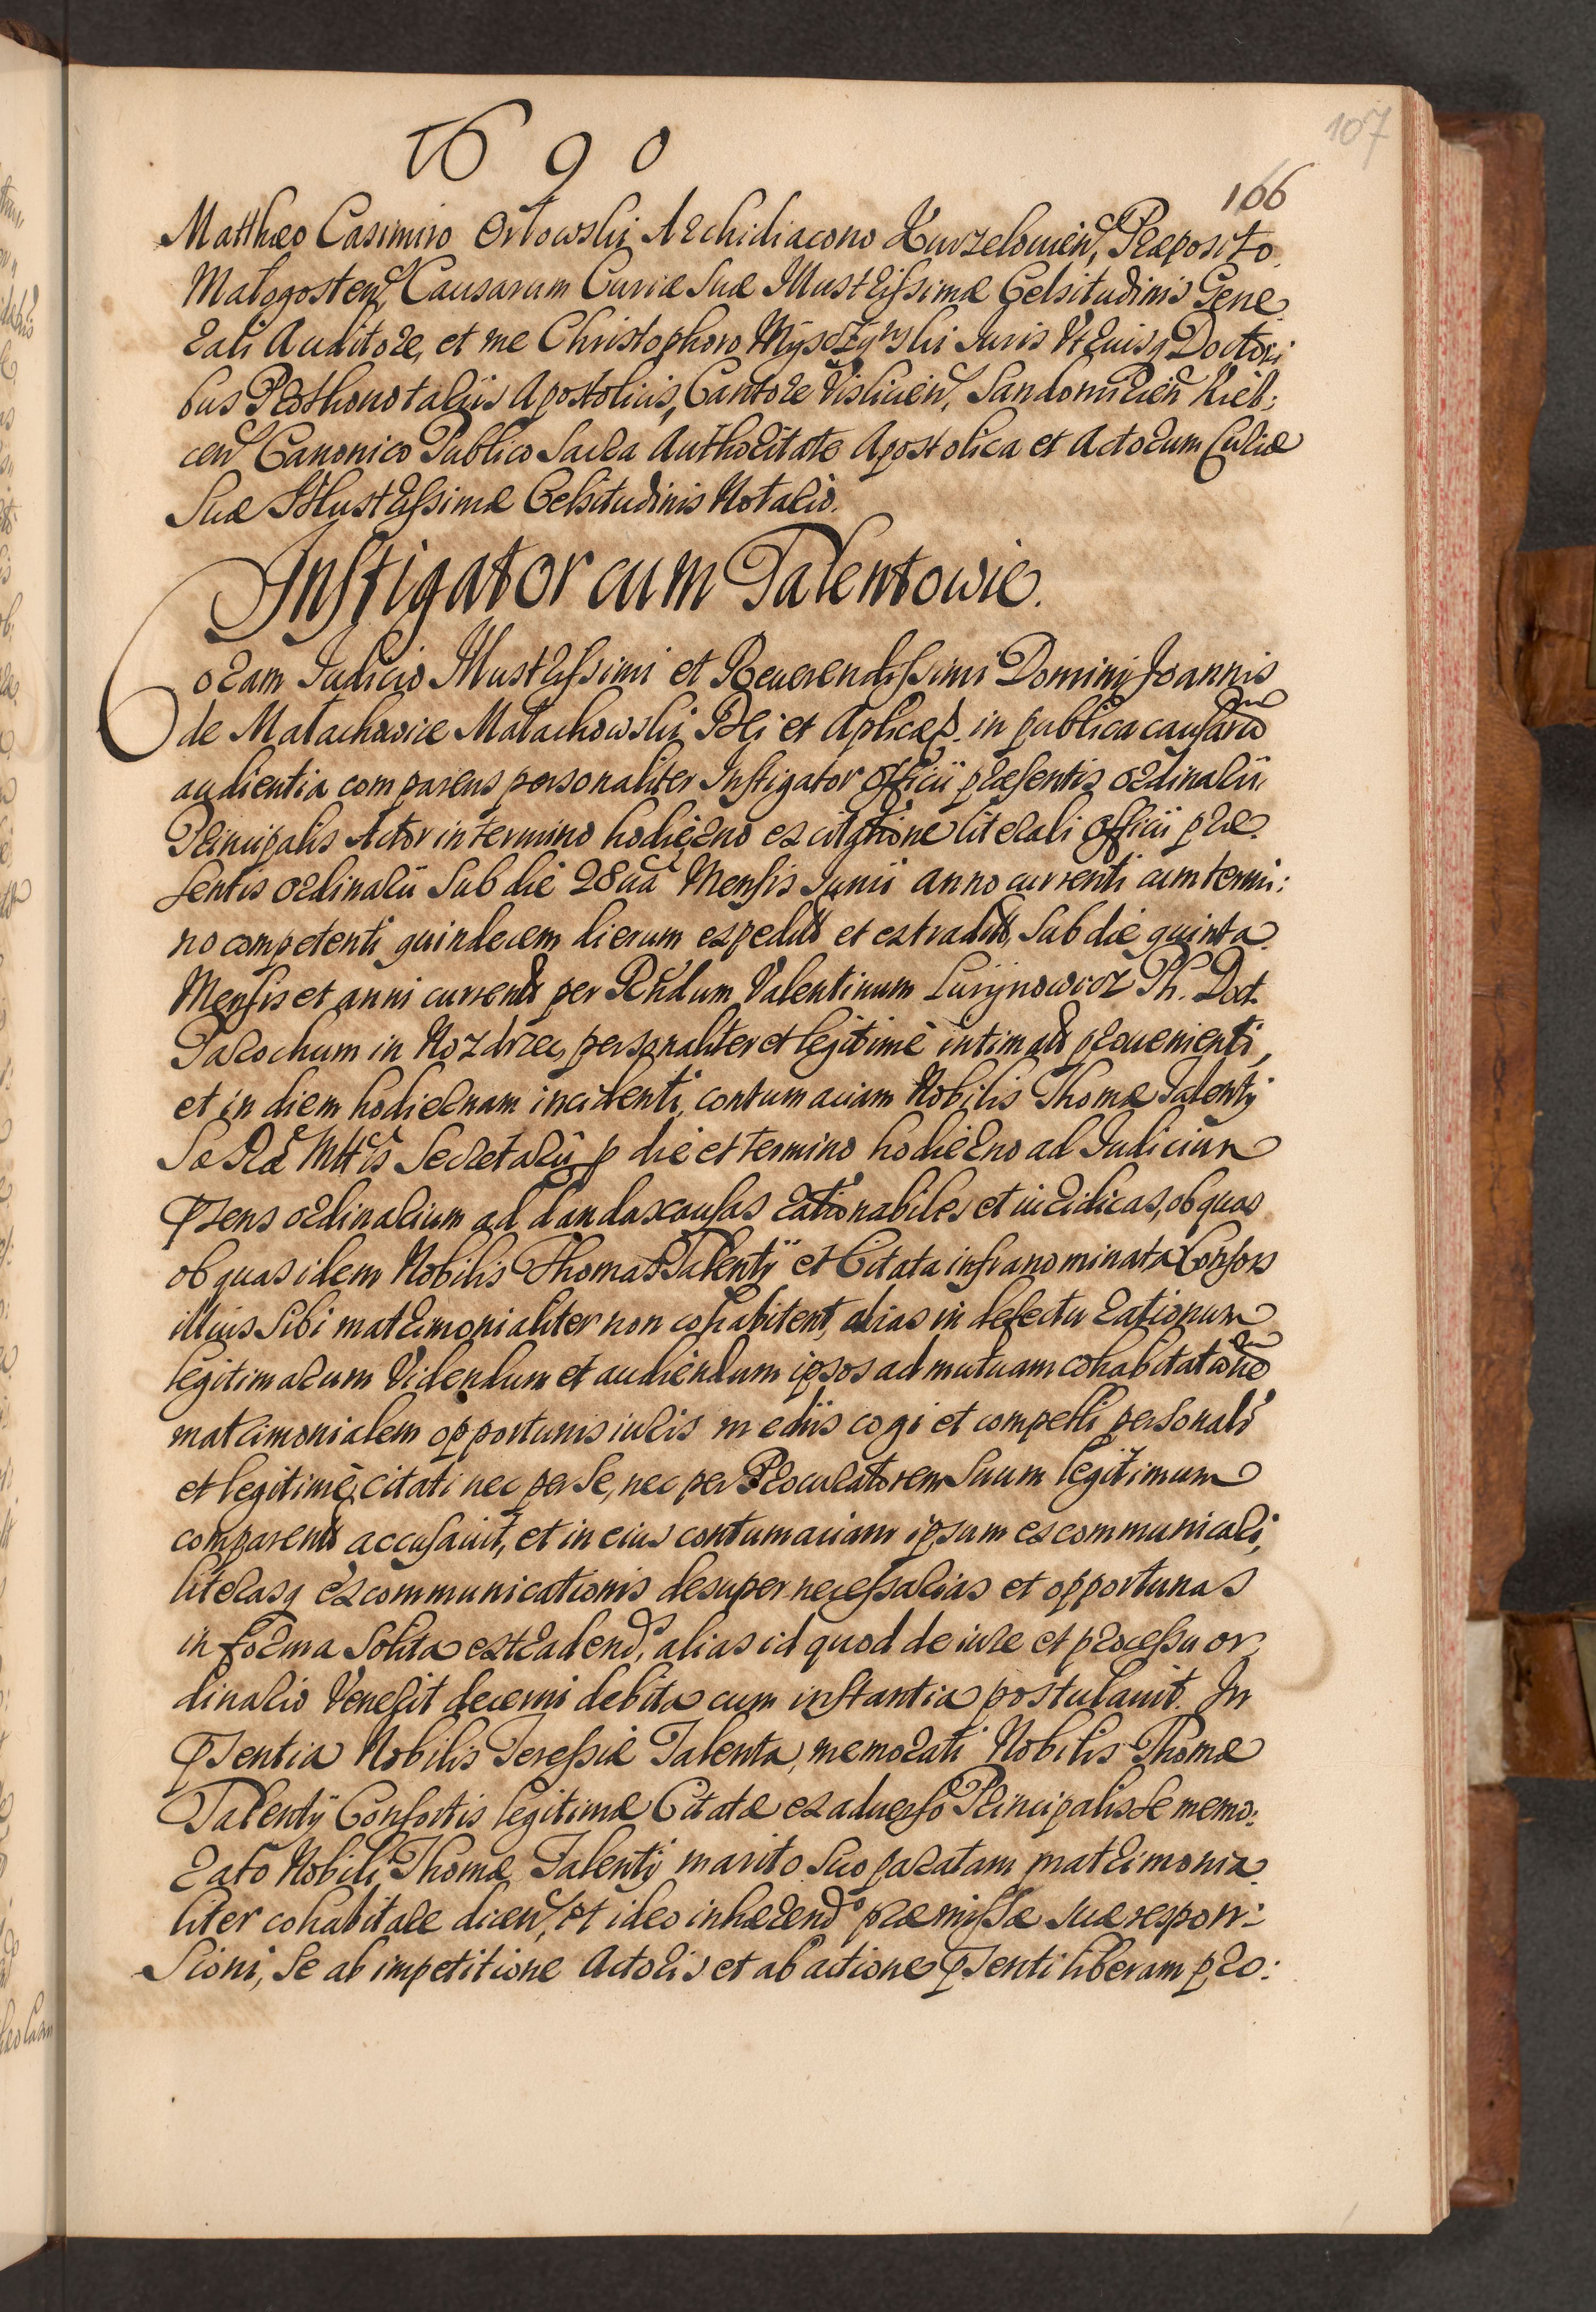 1690
107
166
Matthæo Casimiro Orłowski Archidiacono Kurzelovien, Præposito
Małogosten, Causarum Curiæ Suæ Illustrissimæ Celsitudinis Gene
rali Auditore, et me Christophoro Mysczynski Juris Vtriusq Doctori
bus Prothonotariis Apostolicis, Cantore Vislicien, Sandomirien Kiel:
cen Canonico Publico Sacra Authoritate Apostolica et Actorum Curiæ
Suæ Illustrissimæ Celsitudinis Notario.
Instigator cum Talentowie.
Coram Judicio Illustrissimi et Reuerendissimi Domini Joannis
de Małachowice Małachowski Dei et Aplicæ S. in publica causarum
audientia comparens personaliter Instigator Officii præsentis ordinarii
Principalis Actor in termino hodierno ex citatione literali officii præ
sentis ordinarii Sub die 28ua Mensis Junii anno currenti cum termi:
no competenti quindecem dierum expedits et extradits, Sub die quinta
Mensis et anni currents per Rndum Valentinum Luijnowicz Ph. Doct.
Parochum in Nozdrzec, personaliter et legitimè intimats prouenienti,
et in diem hodiernam incidenti, contumaciam Nobilis Thomæ Talenty
Sa Ræ Mttis Secretarij p die et termino hodierno ad Judicium
Psens ordinarium ad dandas causas rationabiles et iuridicas, ob quas
ob quas idem Nobilis Thomas Talentÿ et Citata infranominata Consors
illius Sibi matrimonialiter non cohabitent, alias in defectu rationum
legitimarum Videndum et audiendum ipsos ad mutuam cohabitationem
matrimonialem opportunis iuris mediis cogi et compelli personalr
et legitimè citati nec per Se, nec per Procuratorem Suum legitimum
comparents accusauit, et in eius contumaciam ipsum excommunicari,
literasq excommunicationis desuper necessarias et opportunas
in forma Solita extradend, alias id quod de iure et processu or
dinario Venerit decerni debita cum instantia postulauit. In
Psentia Nobilis Teressiæ Talenta, memorati Nobilis Thomæ
Talentÿ Consortis legitimæ Citatæ ex aduerso Principalis Se memo:
rato Nobili Thomæ Talentÿ marito Suo paratam matrimonia
liter cohabitare dicen, Et ideo inhærend præmissæ suæ respon:
Sioni, Se ab impetitione Actoris et ab actione Psenti liberam pro: